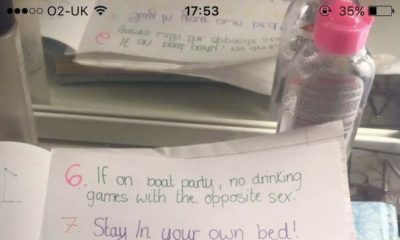 O2-UK 17:53 35%
6. If on boat party, no drinking
games with the opposite sex.
7. Stay In your own bed!